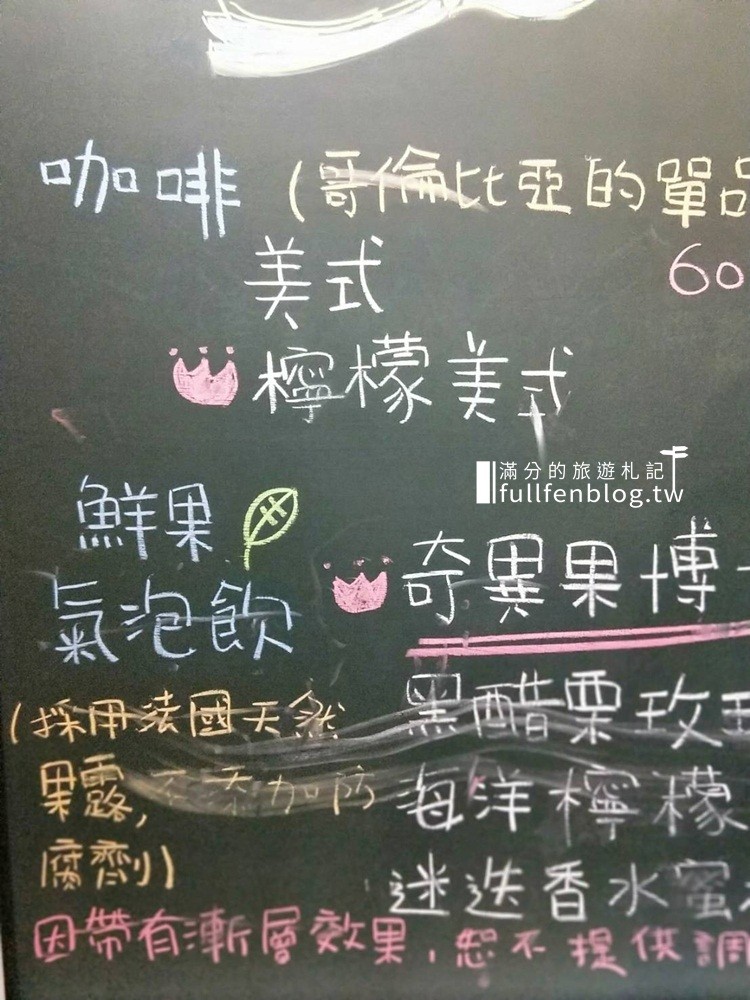 咖啡 (哥倫比亞的單品
美式 60
檸檬美式
滿分的旅遊札記
fullfenblog.tw
鮮果
氣泡飲
奇異果博
黑醋栗玫
海洋檸檬
迷迭香水蜜
(採用法國天然
果露,不添加防
腐劑)
因帶有漸層效果,恕不提供調